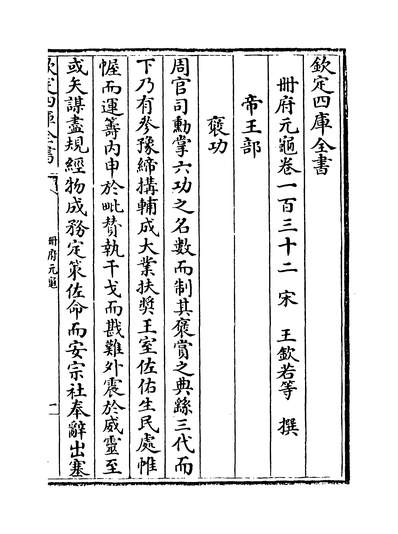 欽定四庫全書
冊府元龜卷一百三十二 宋 王欽若等 撰
帝王部
褒功
周官司勲掌六功之名數而制其褒賞之典繇三代而
下乃有參豫締搆輔成大業扶奨王室佐佑生民處帷
幄而運籌內申於毗賛執干戈而戡難外震於威靈至
或矢謀盡規經物成務定策佐命而安宗社奉辭出塞
欽定四庫全書
冊府元龜
一